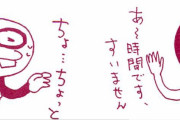 あ〜時間です、
すいません
ちょ…ちょっと